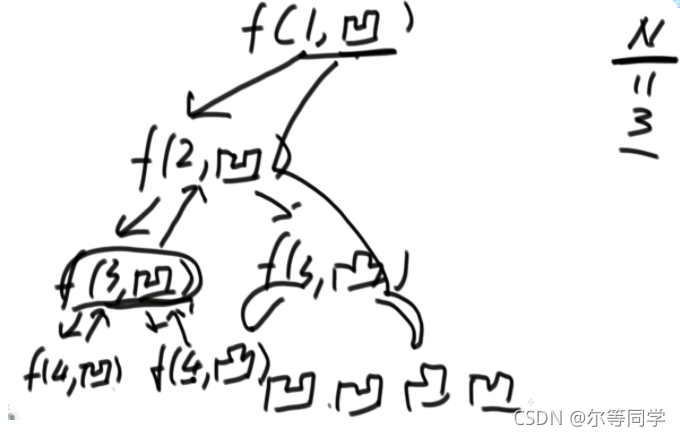 f(1,凹)
N
=
3
f(2,凹)
f(3,凹) f(3,凹)
f(4,凹) f(4,凸) 凹 凹 凸 凹
CSDN @尔等同学